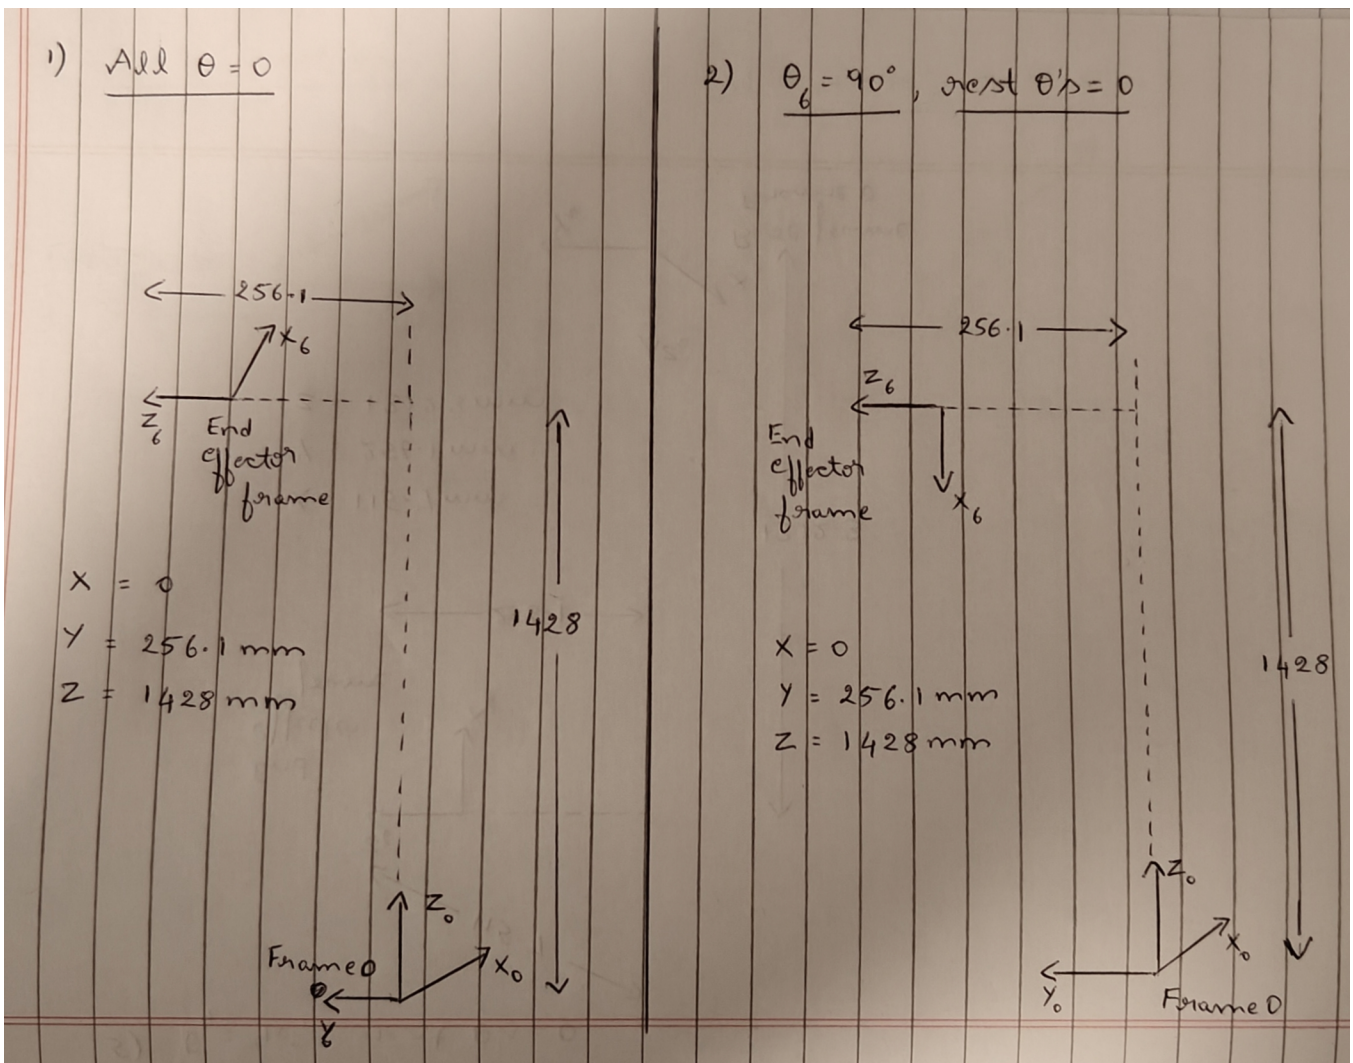 1) All θ = 0
256.1
X6
Z6
End
effector
frame
X = 0
Y = 256.1 mm
Z = 1428 mm
1428
Z0
Frame 0
X0
2) θ6 = 90°, rest θ's = 0
256.1
Z6
End
effector
frame
X6
X = 0
Y = 256.1 mm
Z = 1428 mm
1428
Z0
X0
Y0
Frame 0